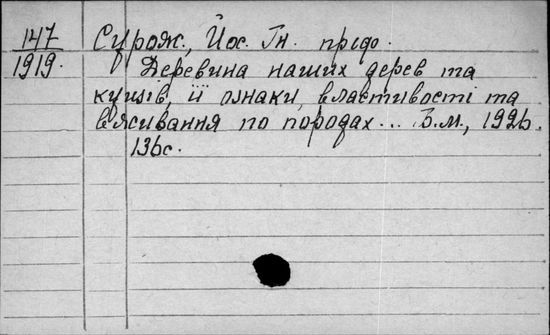 147 Сурож., Йос. Гн. продо.
1919. Деревина наших дерев та
кущів, її ознаки, властивості та
в'ясивання по породах... Б.м., 1926.
136с.